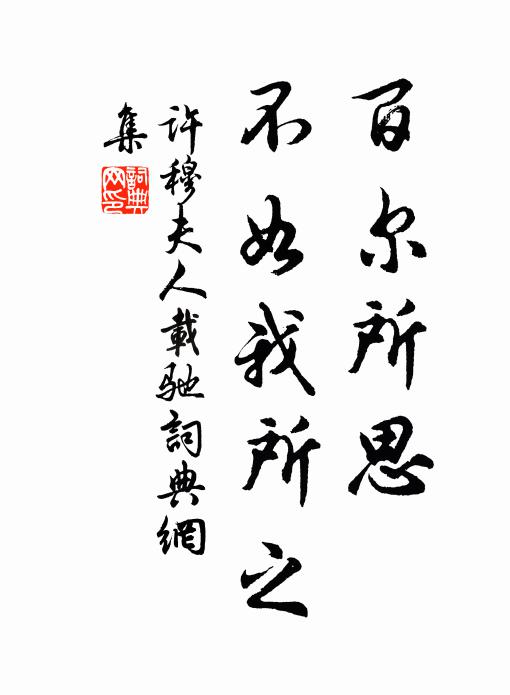 百尔所思
不如我所之
许穆夫人載驰詞典網
集
詞典网印